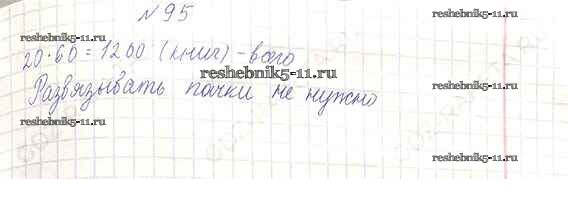 № 95
reshebnik5-11.ru
reshebnik5-11.ru
20·60 = 1200 (книг) - всего
reshebnik5-11.ru
reshebnik5-11.ru
Развязывать пачки не нужно
reshebnik5-11.ru
reshebnik5-11.ru